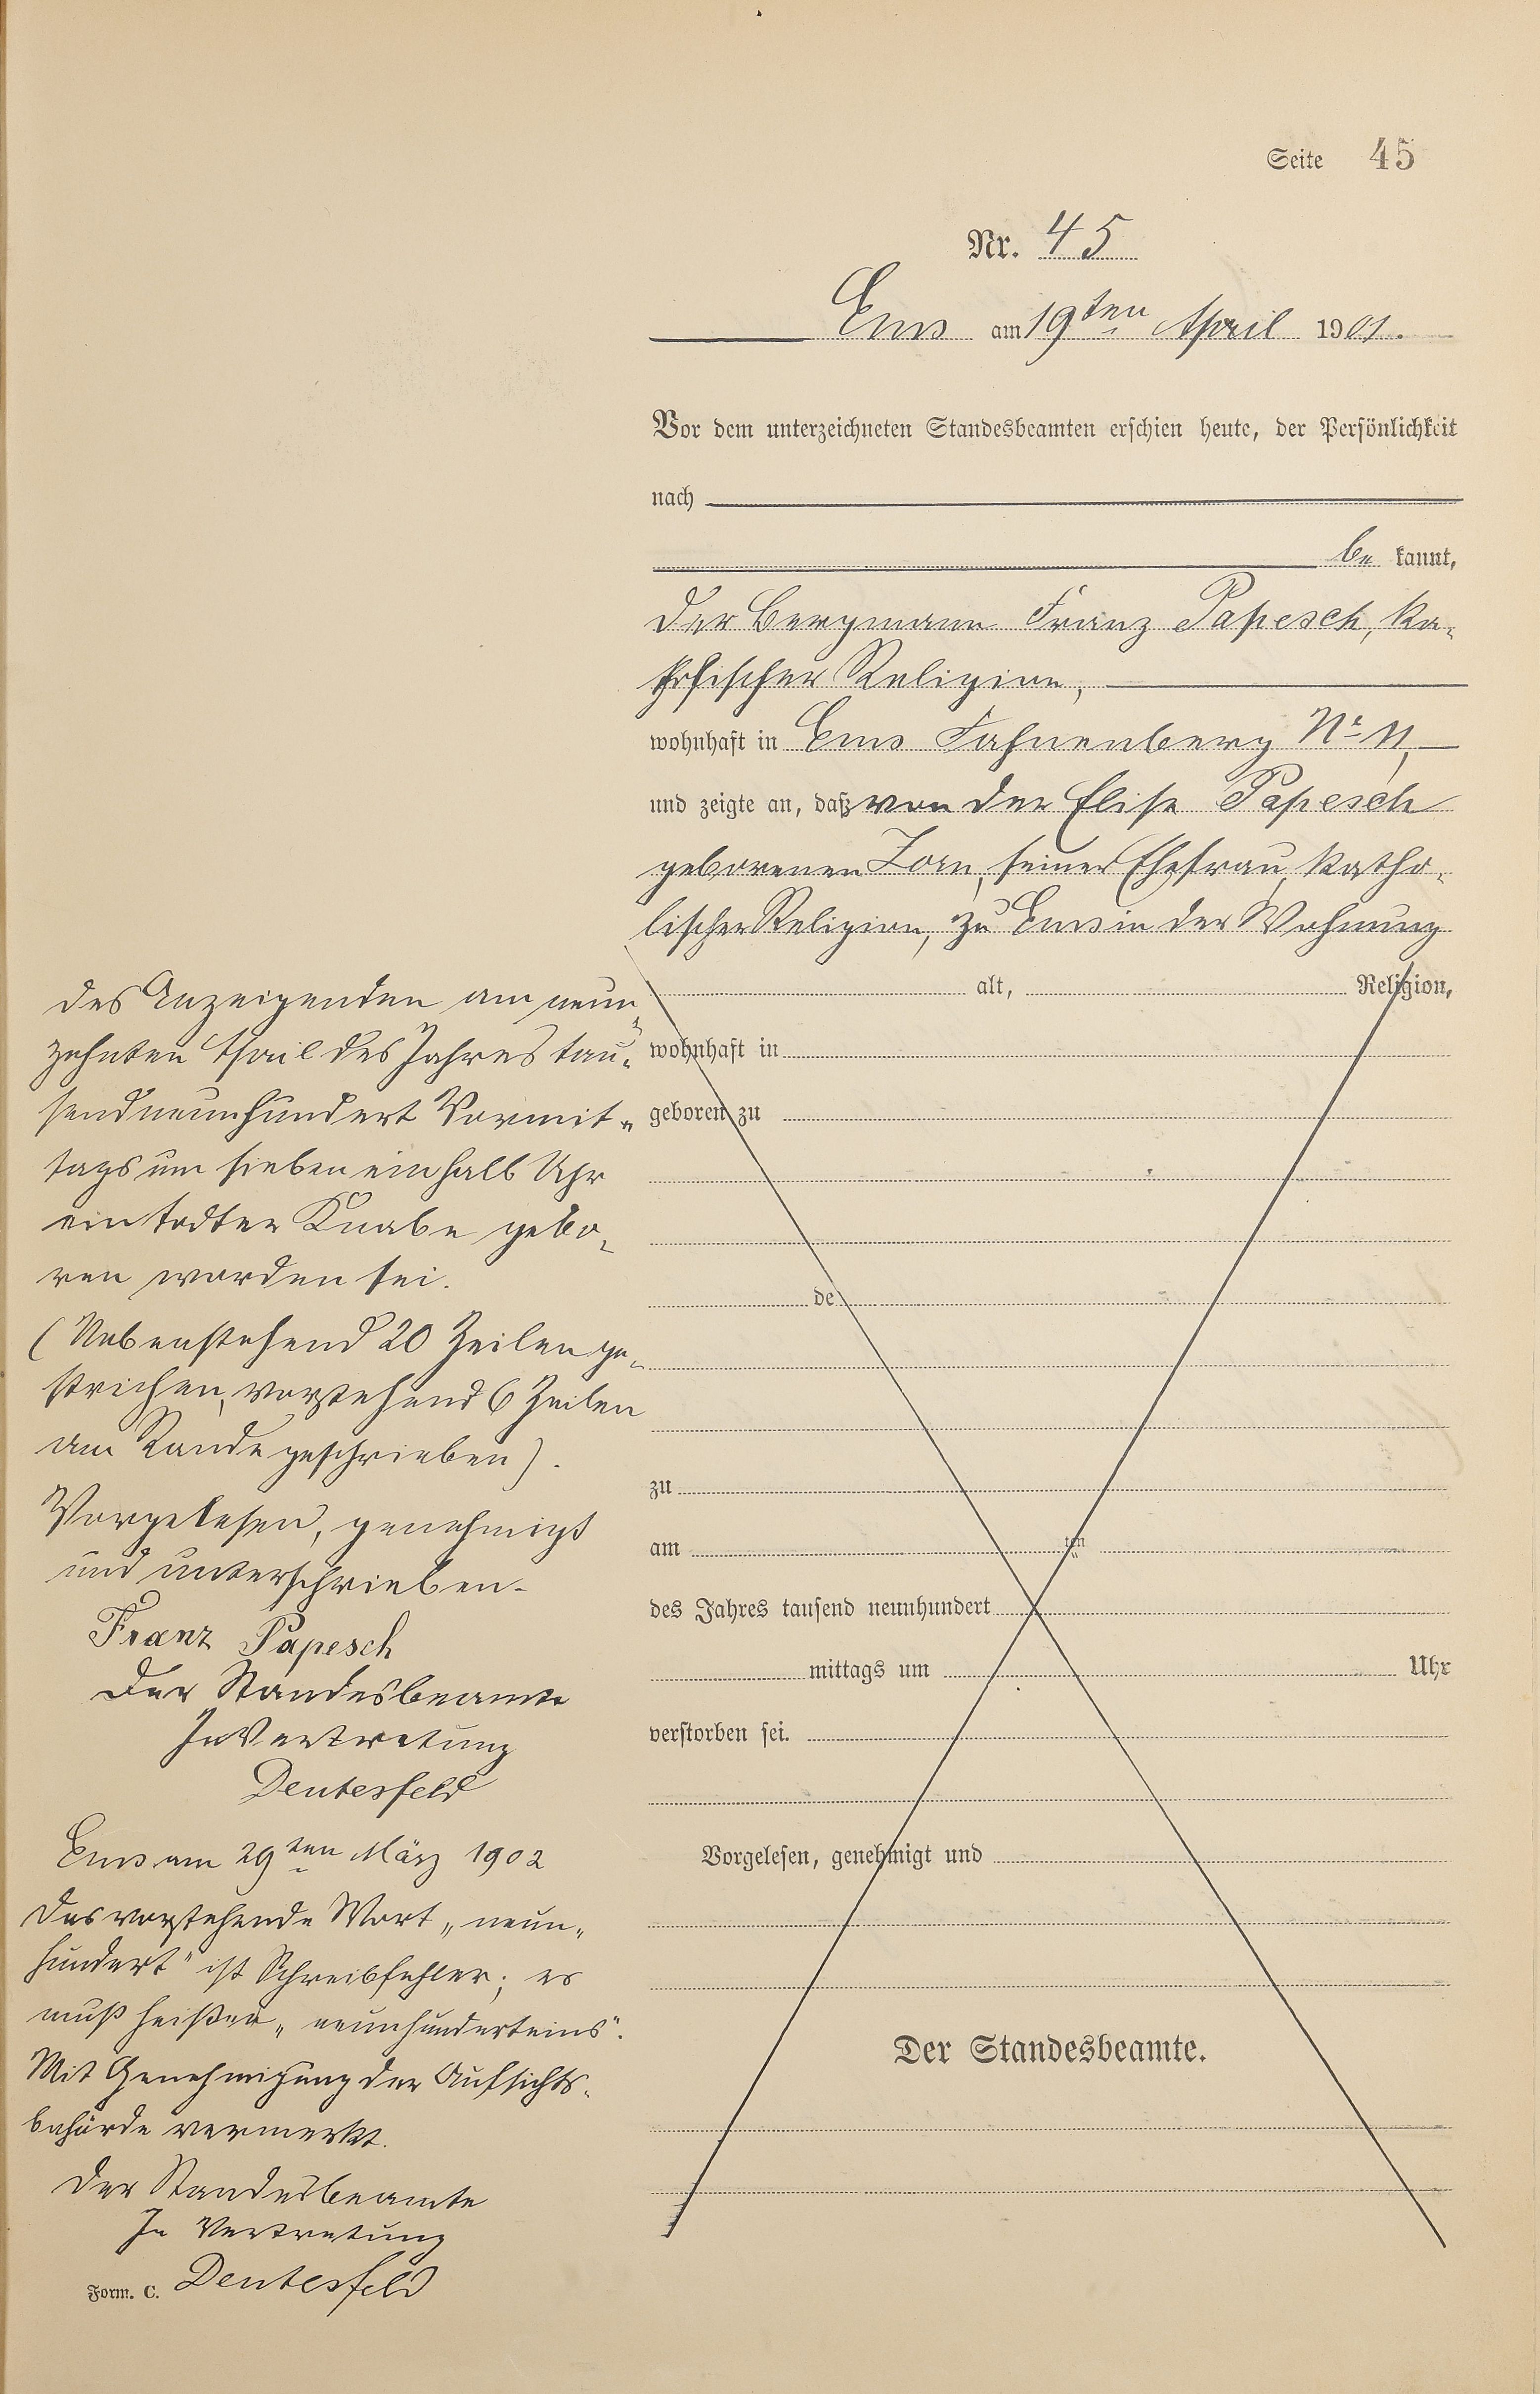 Seite 45
Nr. 45
Ems am 19ten April 1901.
Vor dem unterzeichneten Standesbeamten erschien heute, der Persönlichkeit
nach
be kannt,
der Bergmann Franz Papesch, ka-
tholischer Religion,
wohnhaft in Ems Fahnenberg No 11,
und zeigte an, daß von der Elise Papesch
geborenen Zorn, seiner Ehefrau, katho-
lischer Religion, zu Ems in der Wohnung
des Anzeigenden am neun-
zehnten April des Jahres tau-
sendneunhundert Vormit-
tags um sieben einhalb Uhr
ein todter Knabe gebo-
ren worden sei.
(Nebenstehend 20 Zeilen ge-
strichen, vorstehend 6 Zeilen
am Rande geschrieben).
Vorgelesen, genehmigt
und unterschrieben.
Franz Papesch
Der Standesbeamte
In Vertretung
Deutesfeld
Ems am 29ten März 1902
Das vorstehende Wort „neun-
hundert" ist Schreibfehler; es
muß heißen „neunhunderteins".
Mit Genehmigung der Aufsichts-
behörde vermerkt.
Der Standesbeamte
In Vertretung
Deutesfeld
Form. C.
alt, Religion,
wohnhaft in
geboren zu
de
zu
am ten
des Jahres tausend neunhundert
mittags um Uhr
verstorben sei.
Vorgelesen, genehmigt und
Der Standesbeamte.